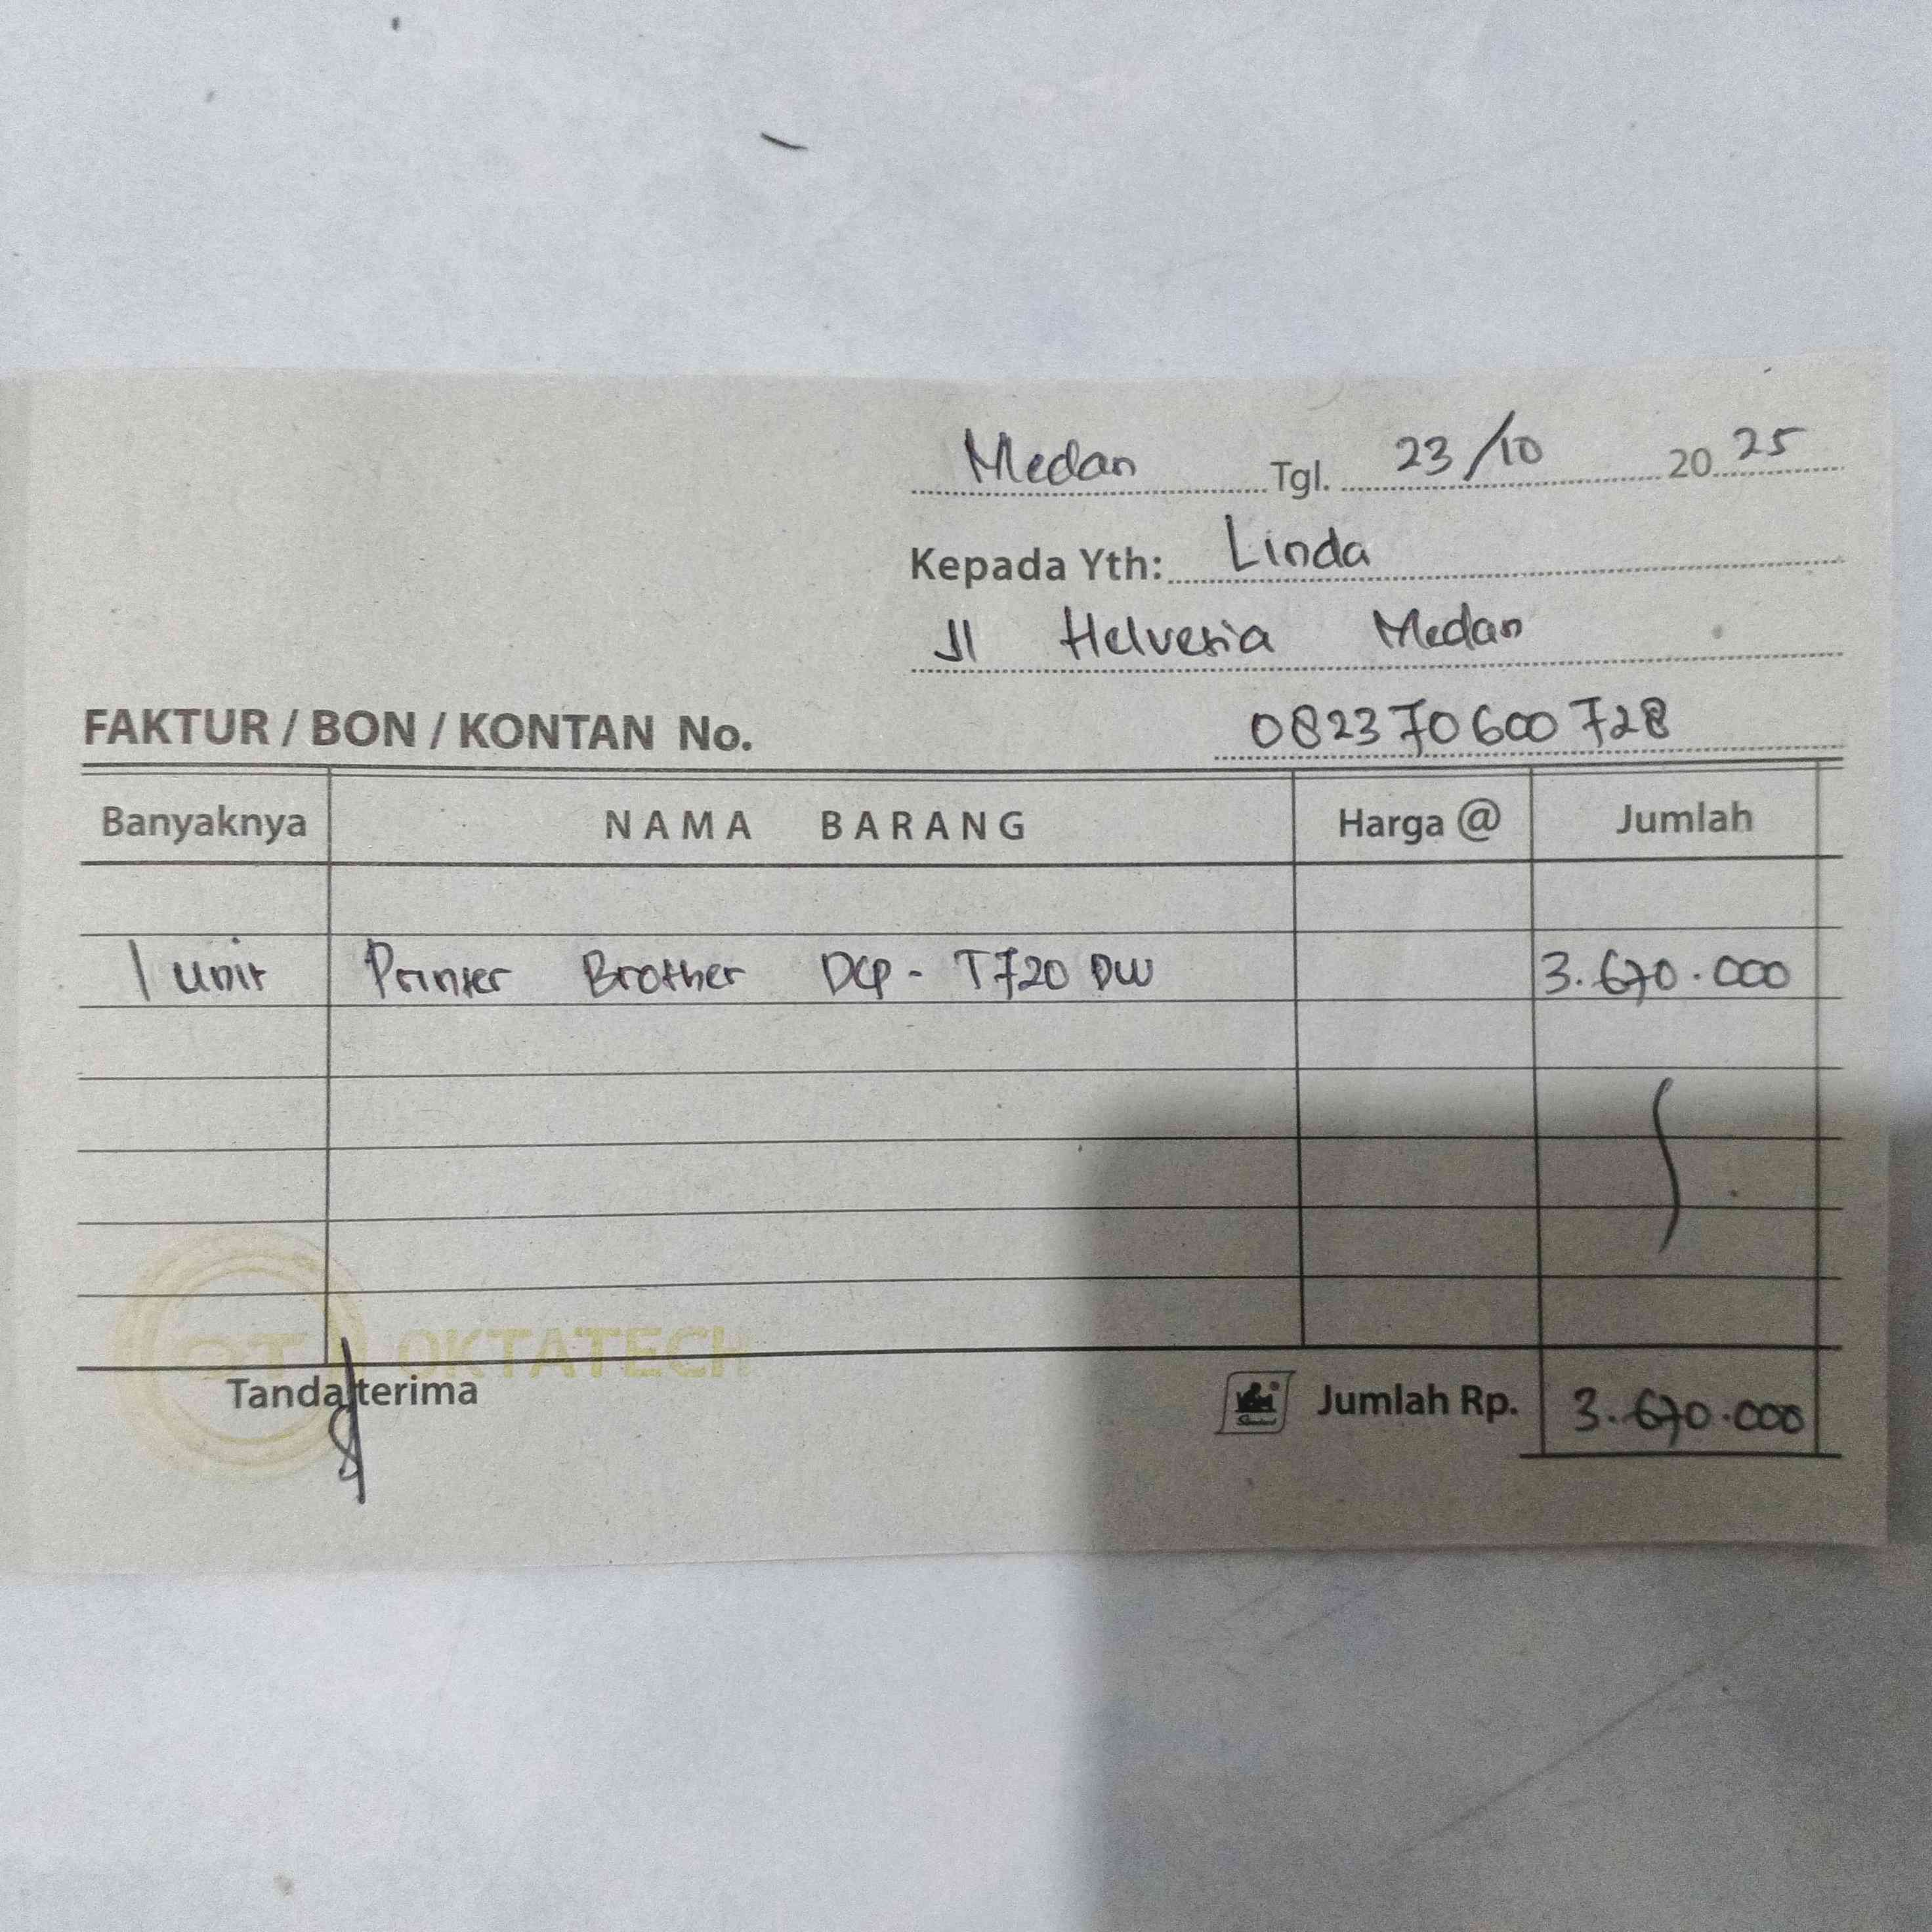 Medan Tgl. 23/10 2025
Kepada Yth: Linda
Jl Helvesia Medan
FAKTUR / BON / KONTAN No. 082370600728
Banyaknya NAMA BARANG Harga @ Jumlah
1 unit Printer Brother DCP - T720 DW 3.670.000
OT OKTATECH
Tanda terima Jumlah Rp. 3.670.000